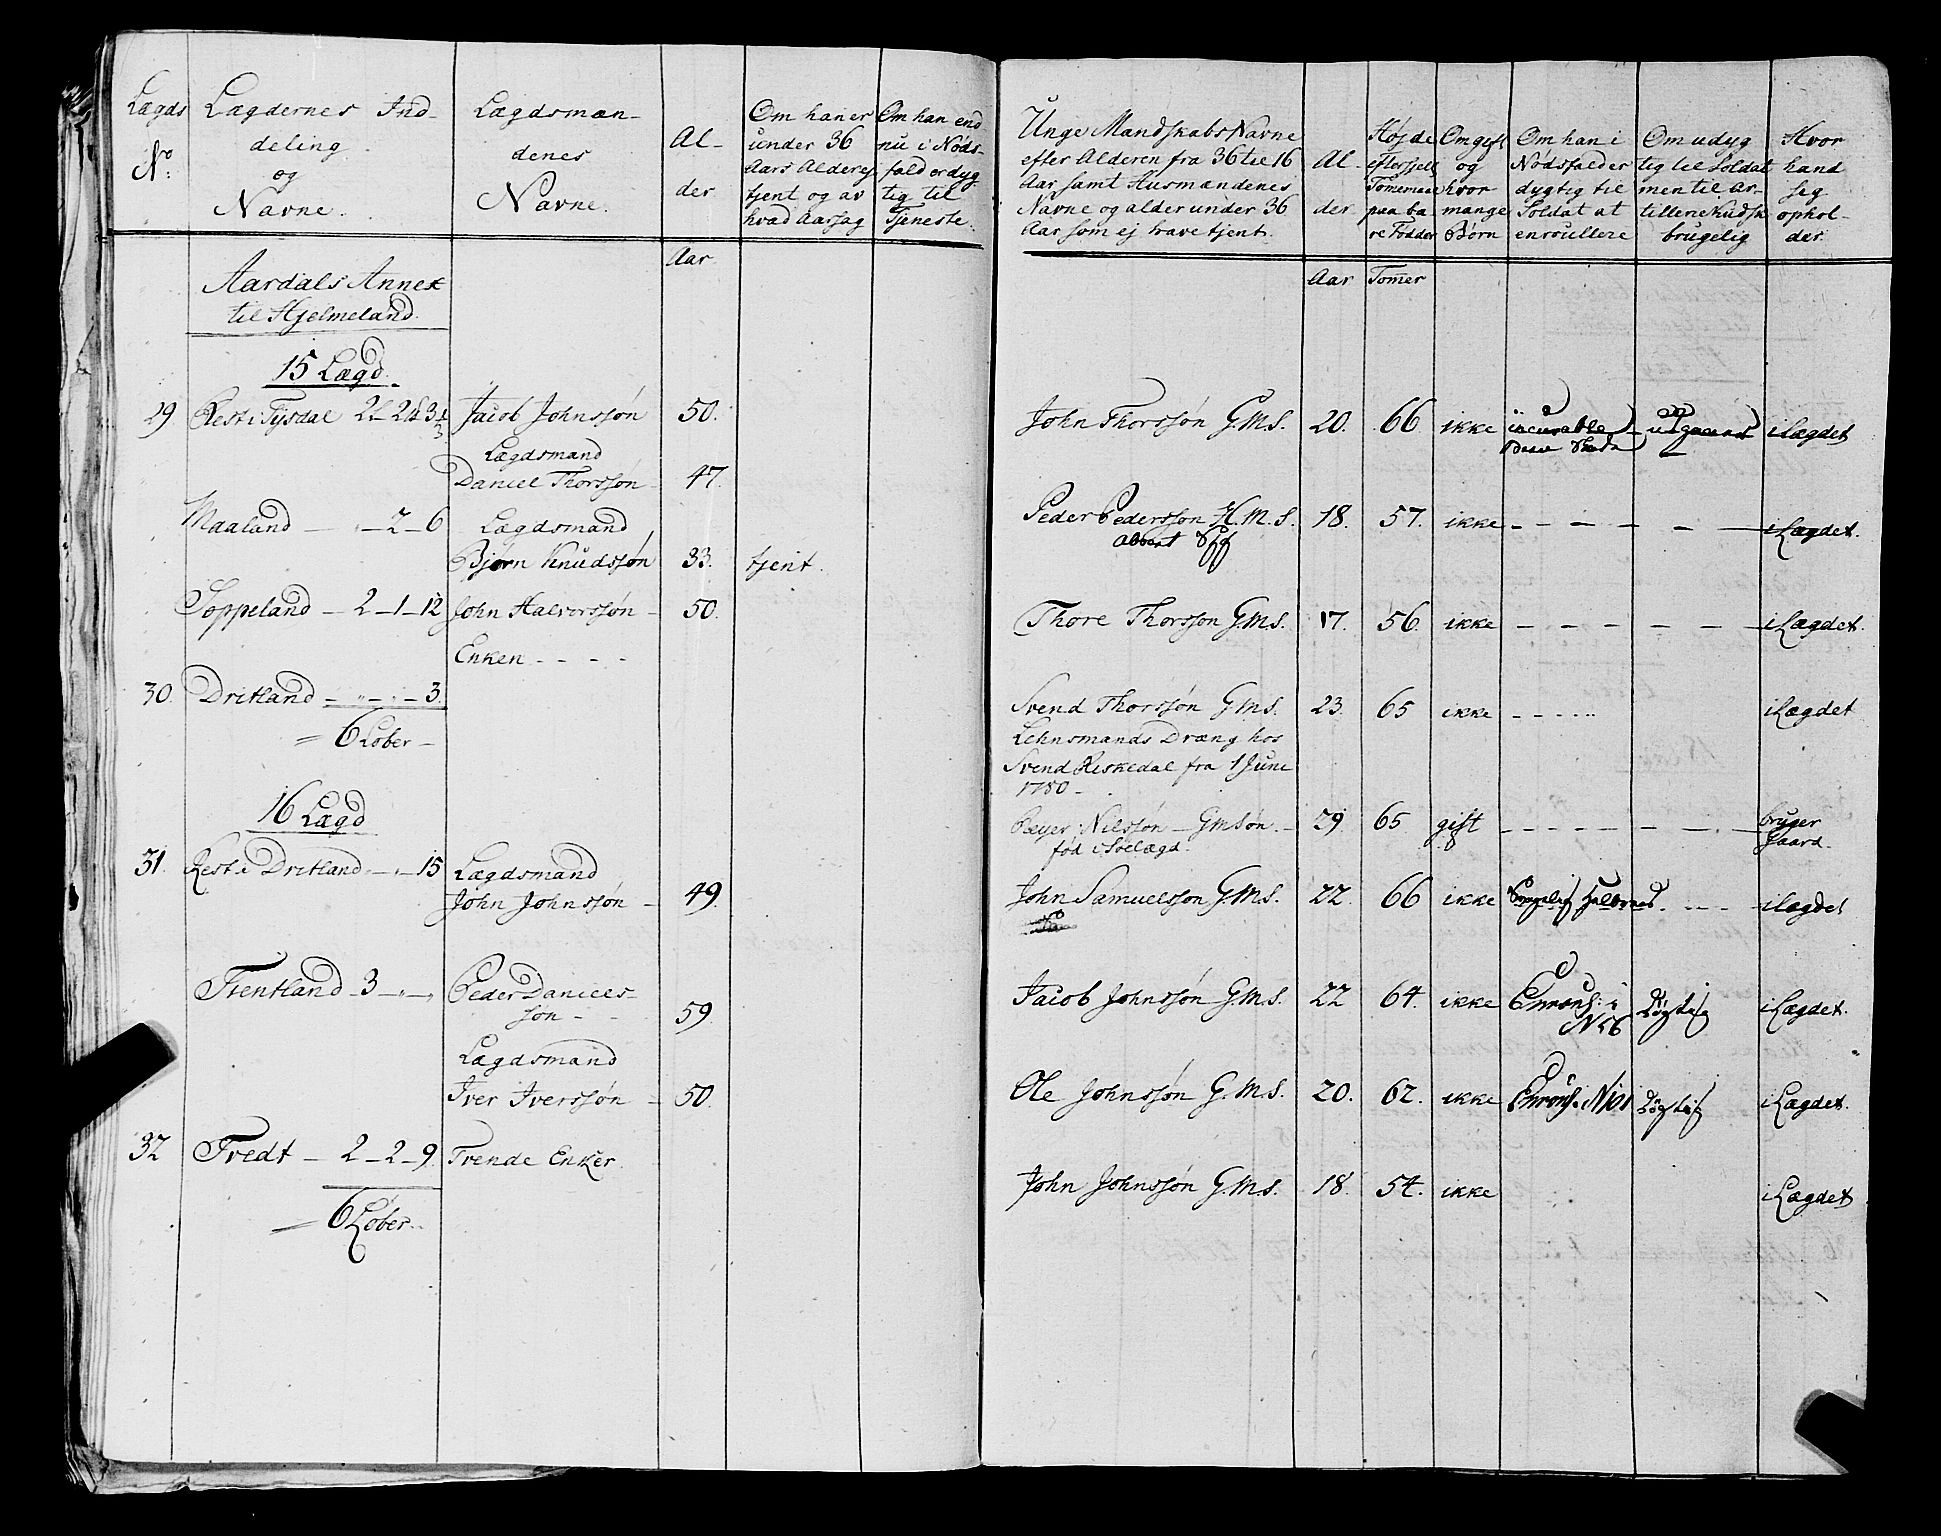 Lægds
No:
Lægdernes Ind-
deling
og
Navne.
Lægdsmæn-
denes
Navne.
Al-
der
Om han er
under 36
Aars Alder ej
tjent og av
hvad Aarsag
Om han end-
nu i Nøds-
fald er dyg-
tig til
Tjeneste.
Aar
Aardals Annex
til Hjelmeland.
15 Lægd.
29 Rest i Tysdal 2 2 3 1/3 Jacob Johnssøn 50.
Lægdsmand
Daniel Thorssøn 47.
Maaland - " - 2 - 6 Lægdsmand
Bjørn Knudssøn 33. tjent.
Soppeland - 2 - 1 - 12 John Halvorssøn - 50.
Enken - - - -
30. Dritland - " - " - 3.
= 6 Løber -
16 Lægd
31. Rest i Dritland - " - 15 Lægdsmand
John Johnssøn - 49.
Tientland - 3 - " - " Peder Daniels-
søn - - 59.
Lægdsmand
Iver Iverssøn - 50.
32 Tredt - 2 - 2 - 9. Trende Enker.
= 6 Løber.
Unge Mandskabs Navne
efter Alderen fra 36 til 16
Aar samt Husmændenes
Navne og alder under 36
Aar som ej have tjent.
Al-
der
Højde
efter Sjell
Tommer
paa ba
re Fødder
Om gift
og
hvor
mange
Børn
Om han i
Nødsfalder
dygtig til
Soldat at
enroullere
Om udyg
tig til Soldat
men til Ar-
tillerie Kudsk
brugelig
Hvor
hand
sig
ophol-
der.
Aar Tomer
John Thorssøn G.M.S. 20. 66 ikke incurable udgaaend i Lægdet
Peder Pederssøn H.M.S. 18. 57. ikke - - - - - - i Lægdet.
Thore Thorsson G.M.S. 17. 56. ikke - - - - - - i Lægdet.
Svend Thorssøn G.M.S. 23. 65 ikke - - - - - i Lægdet
Lehnsmands Dræng hos
Svend Riskedal fra 1 Juni
1780 -
Reyer Nilssøn - GMSøn - 29. 65 gift - - - - - - bruger
fød i Søelægd. Gaard.
John Samuelsson G.M.S. 22. 66 ikke - - - - i Lægdet
Jacob Johnssøn G.M.S. 22 64. ikke Enroul: i
No 56 Dögtig i Lægdet.
Ole Johnssøn G.M.S. 20. 62. ikke Enroul. Dögtig i Lægdet.
John Johnssøn G.M.S. 18. 54. ikke i Lægdet